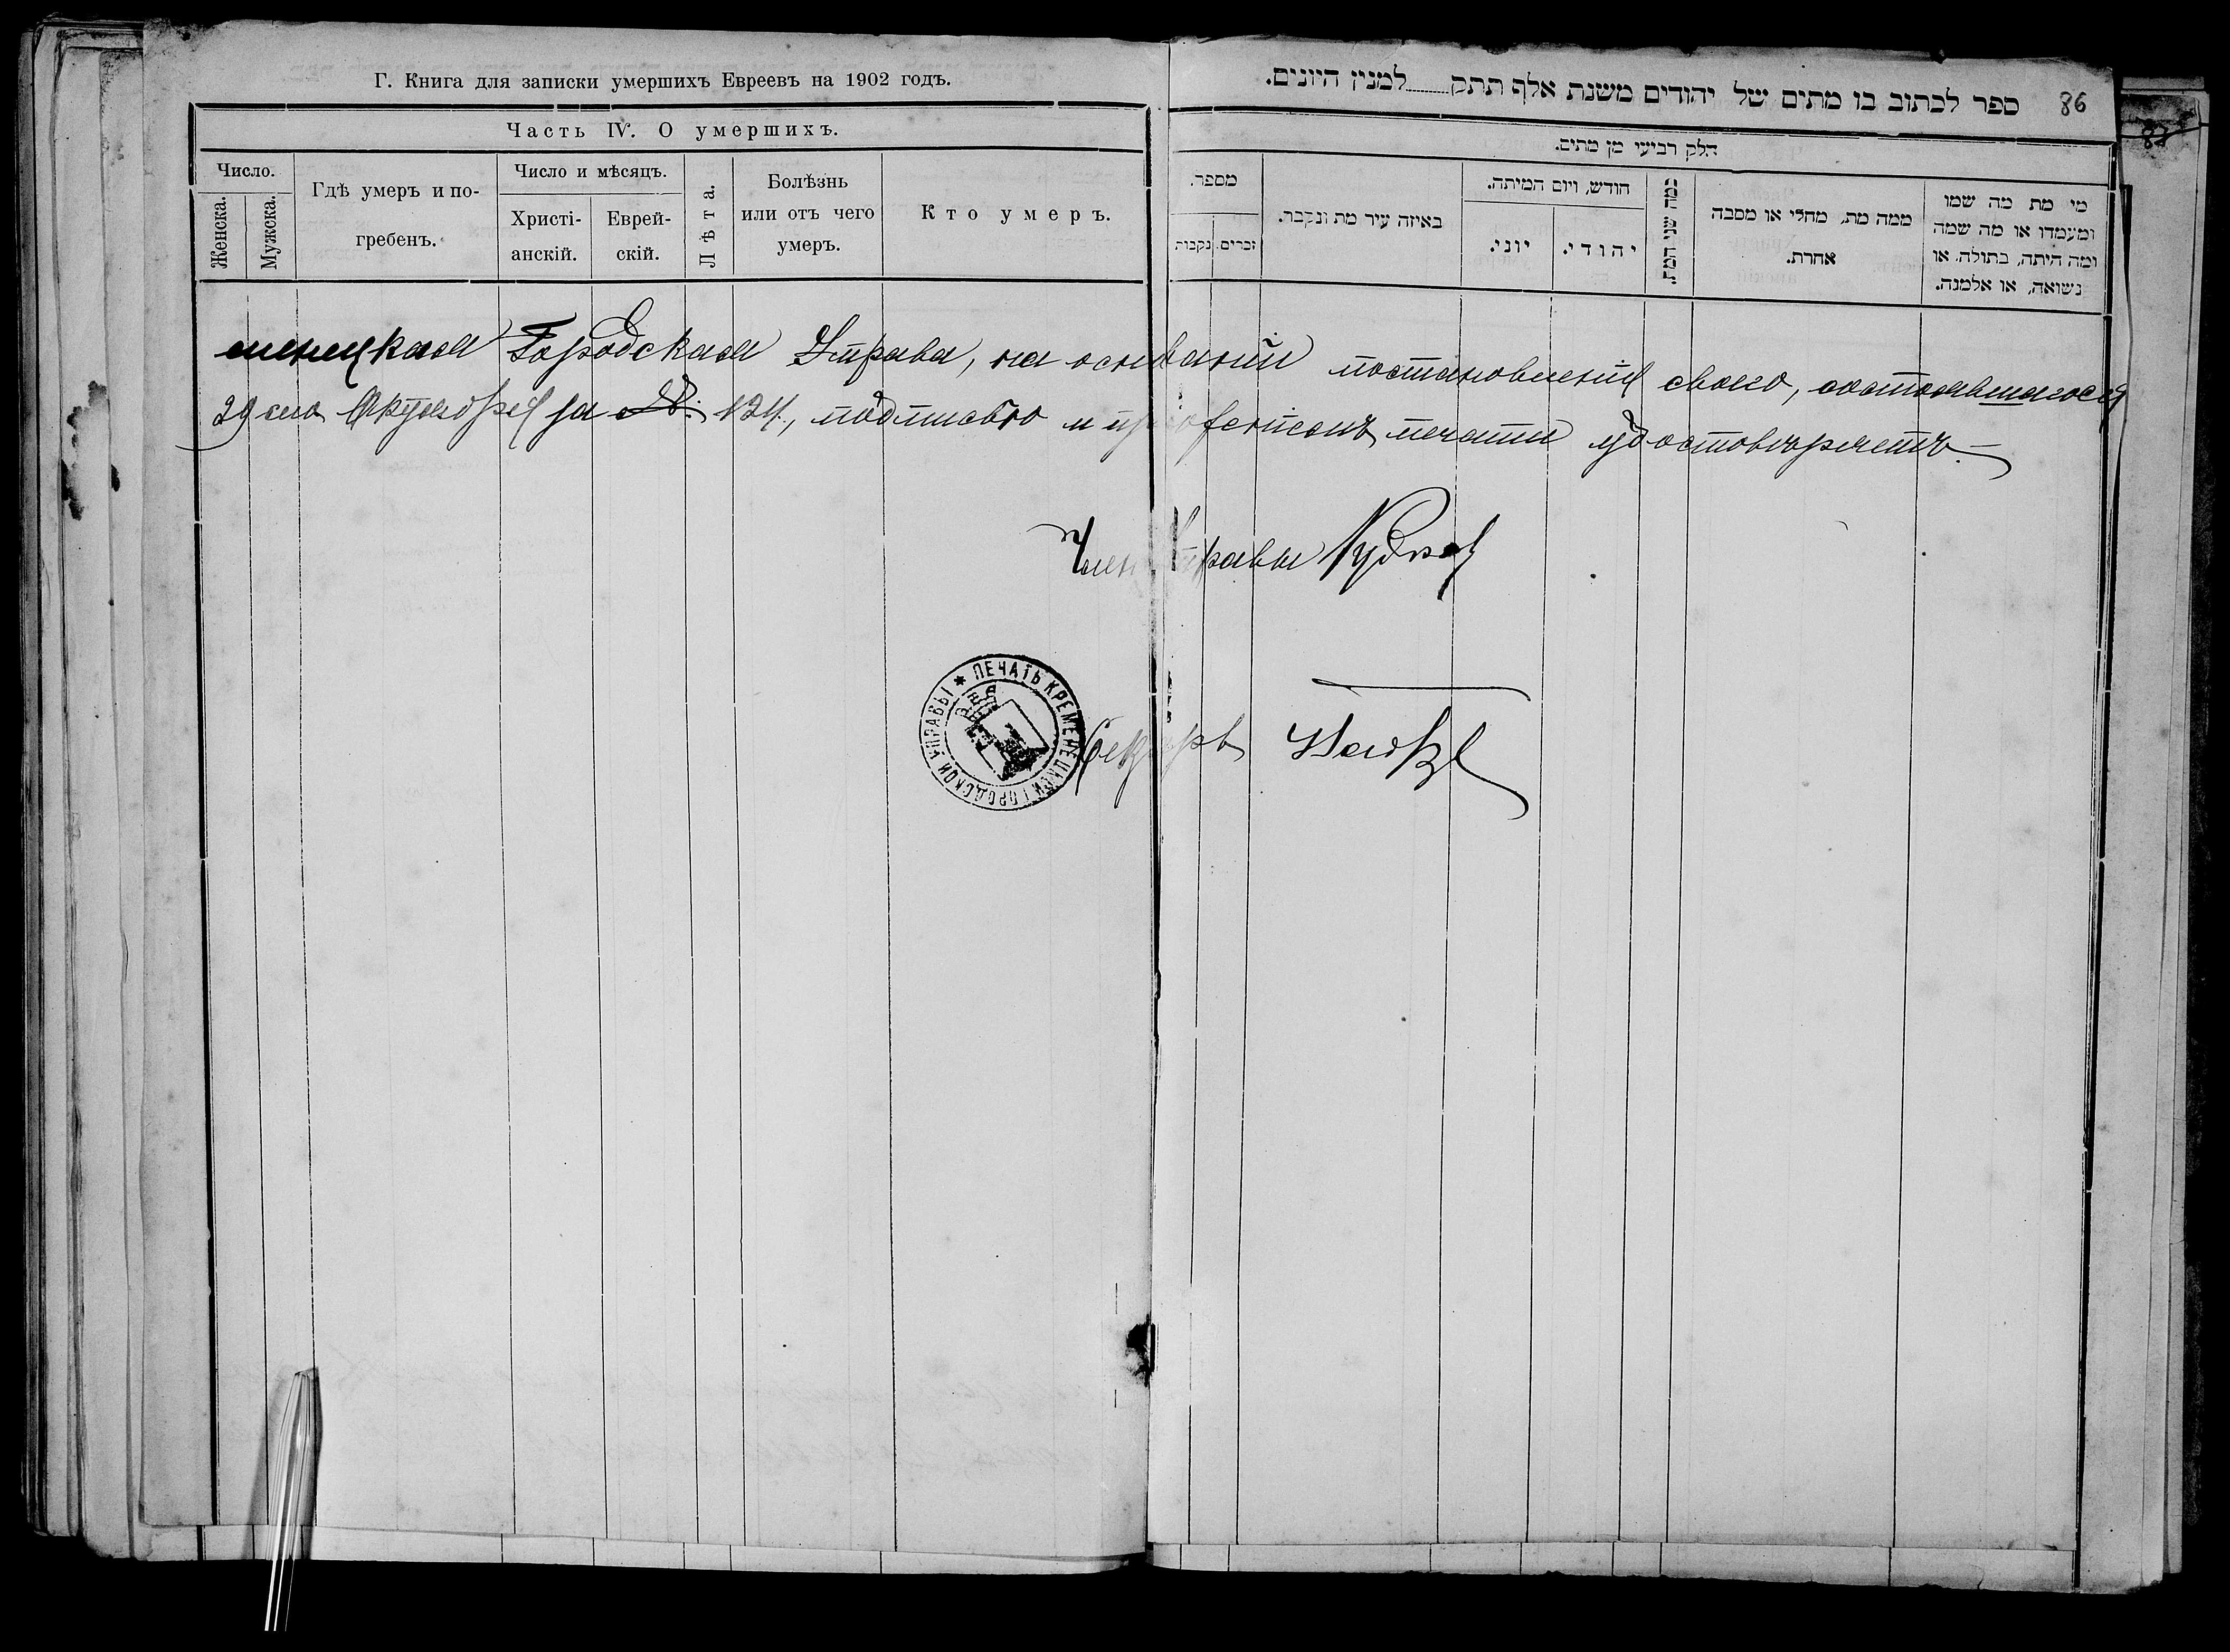 Г. Книга для записки умершихъ Евреевъ на 1902 годъ.
Часть IV. О умершихъ.
Число.
Женска.
Мужска.
Гдѣ умеръ и по-
гребенъ.
Число и мѣсяцъ.
Христі-
анскій.
Еврей-
скій.
Лѣта.
Болѣзнь
или отъ чего
умеръ.
Кто умеръ.
ספר לכתוב בו מתים של יהודים משנת אלף תתק למנין היונים.
86
חלק רביעי מן מתים.
מספר.
נקבות
זכרים.
באיזה עיר מת ונקבר.
חודש, ויום המיתה.
יוני.
יהודי.
כמה שני המת.
ממה מת, מחלי או מסבה
אחרת.
מי מת מה שמו
ומעמדו או מה שמה
ומה היתה, בתולה, או
נשואה, או אלמנה.
менецкая Городская Управа, на основаніи постановленія своего, состоявшагося
29 сего за № 124, подписью и печати удостовѣряетъ.
Членъ Управы
Секрарь
ПЕЧАТЬ КРЕМЕНЕЦКОЙ ГОРОДСКОЙ УПРАВЫ